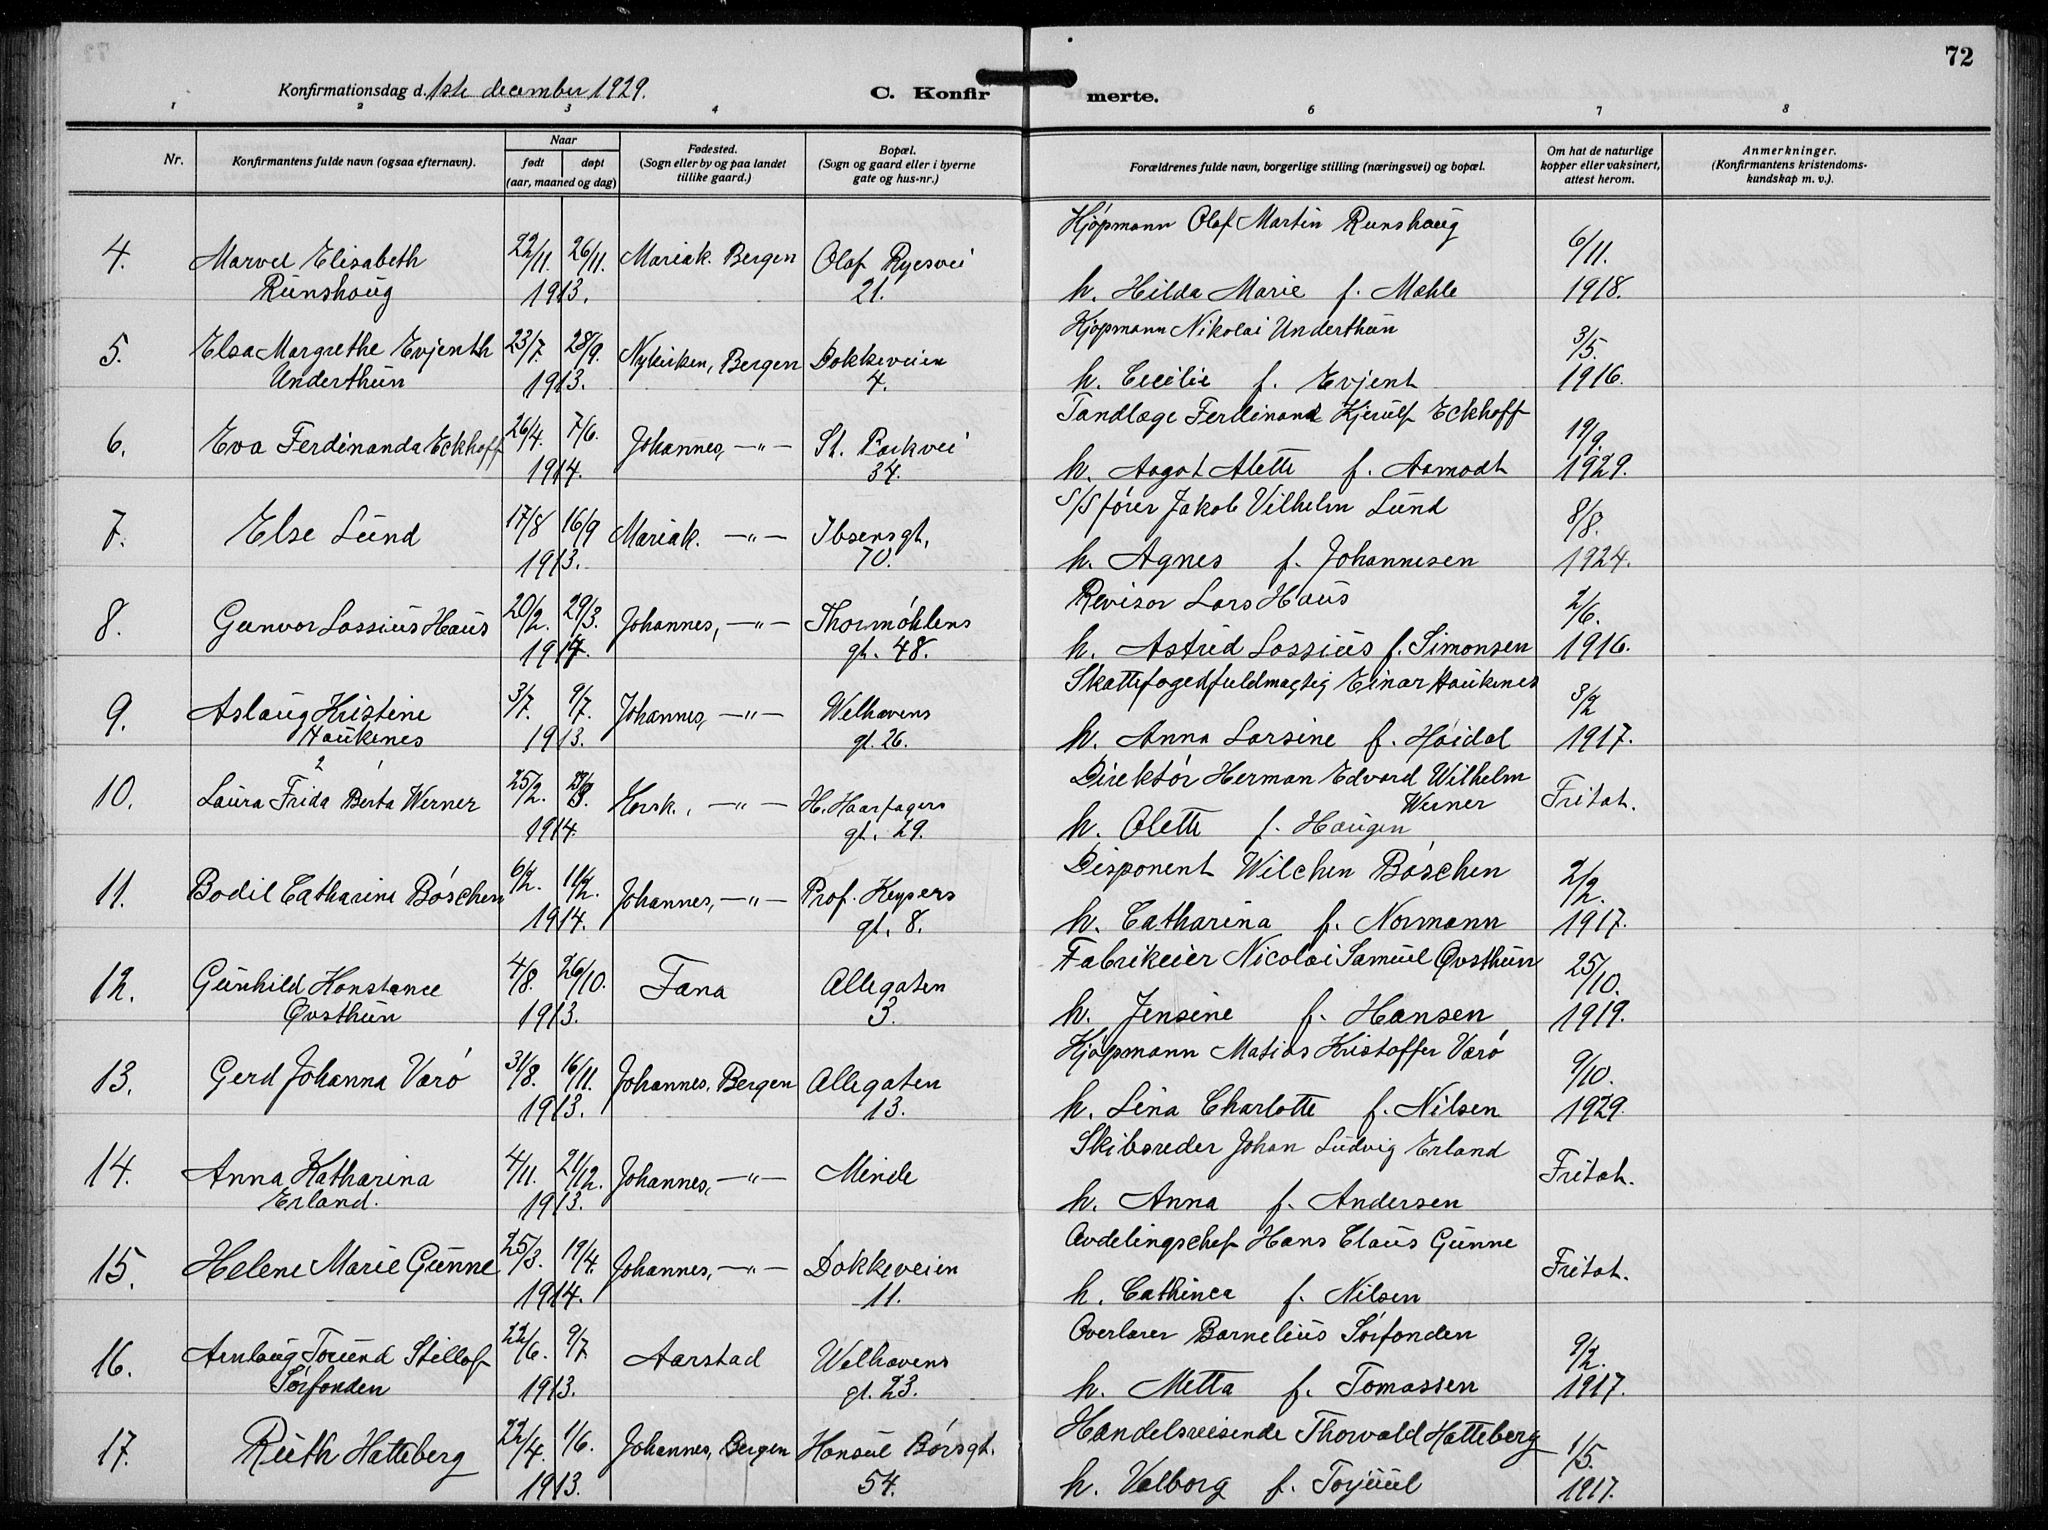 72
Konfirmationsdag d. 1ste december 1929.
C. Konfir
merte.
1 2 3 4 5 6 7 8
Nr.
Konfirmantens fulde navn (ogsaa efternavn).
Naar
født døpt
(aar, maaned og dag)
Fødested.
(Sogn eller by og paa landet
tillike gaard.)
Bopæl.
(Sogn og gaard eller i byerne
gate og hus-nr.)
Forældrenes fulde navn, borgerlige stilling (næringsvei) og bopæl.
Om hat de naturlige
kopper eller vaksinert,
attest herom.
Anmerkninger.
(Konfirmantens kristendoms-
kundskap m. v.).
Kjøpmann Olaf Martin Runshaug
4. Marvel Elisabeth 22/11. 26/11. Mariak. Bergen Olaf Ryesvei 6/11.
Runshaug 1913. 21. h. Hilda Marie f. Mæhle 1918.
Kjøpmann Nikolai Underthun
5. Elsa Margrethe Evjenth 23/7. 28/9. Nykirken, Bergen Dokkeveien 3/5.
Underthun 1913. 4. h. Cecilie f. Evjent 1916.
Tandlæge Ferdinand Kjerulf Eckhoff
6. Eva Ferdinanda Eckhoff 26/4. 7/6. Johannes, —"— St. Parkvei 19/9.
1914. 34. h. Aagot Alette f. Aamodt 1929.
S/S fører Jakob Vilhelm Lund
7. Else Lund 17/8 16/9 Mariak. —"— Ibsensgt. 8/8.
1913. 70. h. Agnes f. Johannesen 1924.
Revisor Lars Haus
8. Gunvor Lossius Haus 20/2. 29/3. Johannes, —"— Thormøhlens 2/6.
1914. gt. 48. h. Astrid Lossius f. Simonsen 1916.
Skattefogedfuldmægtig Einar Haukenes
9. Aslaug Kristine 3/7. 9/7. Johannes, —"— Welhavens 3/2
Haukenes 1913. gt. 26. h. Anna Larsine f. Høidal 1917.
2
Direktør Herman Edvard Wilhelm
10. Laura Frida Berta Werner 25/2. Korsk., —"— H. Haarfagers Werner Fritat.
1914. gt. 29. h. Olette f. Haugen
Disponent Wilchen Bøschen
11. Bodil Catharina Bøschen 6/2. 11/2. Johannes, —"— Prof. Keysers 2/2.
1914. gt. 8. h. Catharina f. Normann 1917.
Fabrikeier Nicolai Samuel Øvsthun
12. Gunhild Konstance 4/8. 26/10. Fana Allegaten 25/10.
Øvsthun 1913. 3. h. Jensine f. Hansen 1919.
Kjøpmann Matias Kristoffer Værø
13. Gerd Johanna Værø 31/8. 16/11. Johannes, Bergen Allegaten 9/10.
1913. 13. h. Lina Charlotte f. Nilsen 1929.
Skibsreder Johan Ludvig Erland
14. Anna Katharina 4/11. 21/12. Johannes, —"— Minde Fritat.
Erland. 1913. h. Anna f. Andersen
Avdelingschef Hans Claus Gunne
15. Helene Marie Gunne 25/3. 19/4. Johannes, —"— Dokkeveien Fritat.
1914. 11. h. Cathinca f. Nilsen
Overlærer Barnelius Sørfonden
16. Arnlaug Torund Stellof 22/6. 9/7. Aarstad Welhavens 9/2.
Sørfonden 1913. gt. 23. h. Metta f. Tomassen 1917.
Handelsreisende Thorvald Hatteberg
17. Ruth Hatteberg 22/4. 1/6. Johannes, Bergen Konsul Børsgt. 1/5.
1913. 54. h. Valborg f. Torjuul 1917.